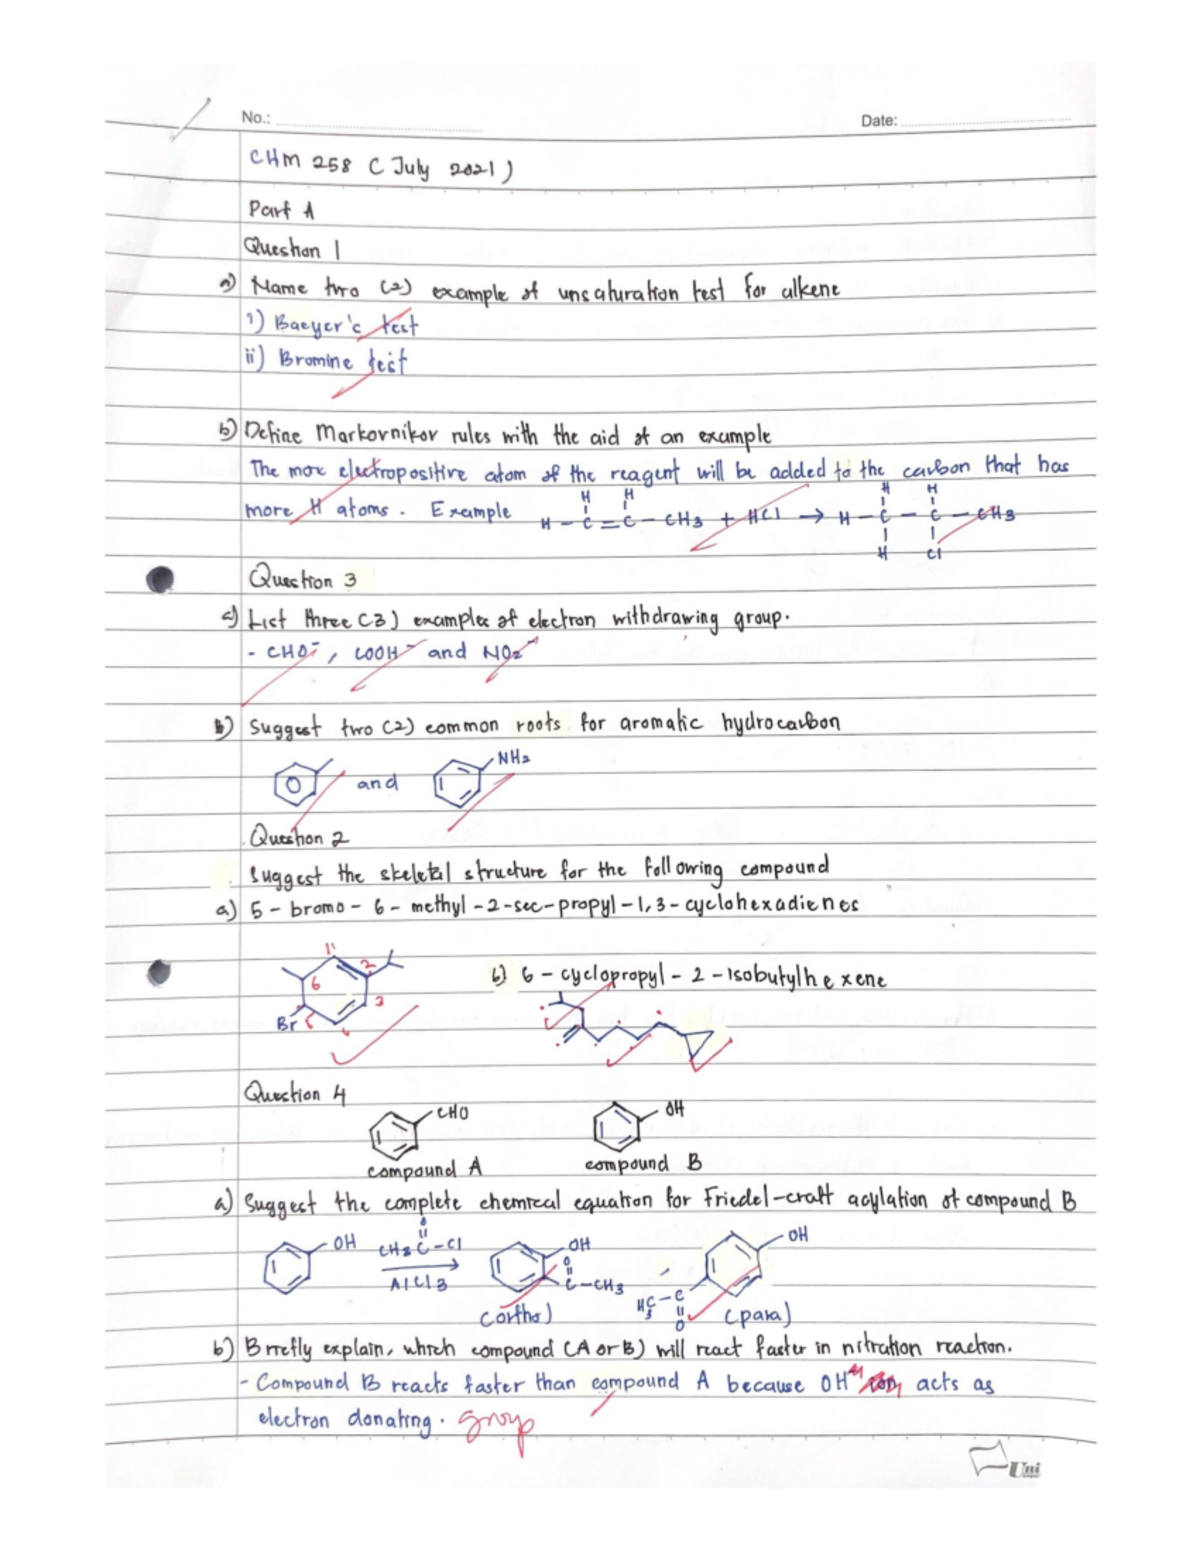 No.:
Date:
CHM 258 ( July 2021 )
Part A
Question 1
a) Name two (2) example of unsaturation test for alkene
i) Baeyer's test
ii) Bromine test
b) Define Markovnikov rules with the aid of an example
The more electropositive atom of the reagent will be added to the carbon that has
more H atoms. Example
H H H H
H - C = C - CH3 + HCl → H - C - C - CH3
H Cl
Question 3
c) List three (3) examples of electron withdrawing group.
- CHO-, COOH- and NO2-
b) Suggest two (2) common roots for aromatic hydrocarbon
and NH2
Question 2
Suggest the skeletal structure for the following compound
a) 5 - bromo - 6 - methyl - 2 - sec - propyl - 1,3 - cyclohexadienes
1 2 3 4 5 6
Br
b) 6 - cyclopropyl - 2 - isobutylhexene
Question 4
CHO OH
compound A compound B
a) Suggest the complete chemical equation for Friedel-craft acylation of compound B
O
OH CH3 C - Cl OH OH
AlCl3 O C - CH3 H3C - C O
(ortho) (para)
b) Briefly explain, which compound (A or B) will react faster in nitration reaction.
- Compound B reacts faster than compound A because OH- acts as
electron donating. group
Uni